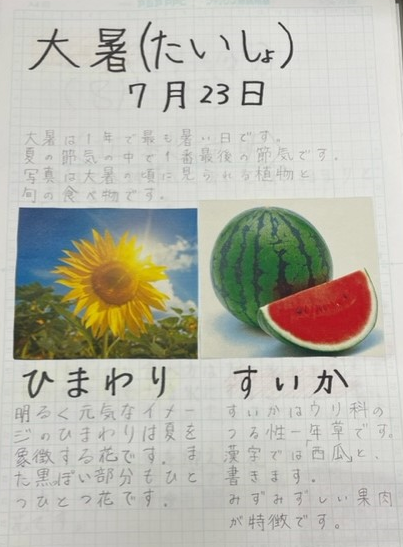 大暑(たいしょ)
7月23日
大暑は1年で最も暑い日です。
夏の節気の中で1番最後の節気です。
写真は大暑の頃に見られる植物と
旬の食べ物です。
ひまわり
明るく元気なイメー
ジのひまわりは夏を
象徴する花です。ま
た黒っぽい部分もひと
つひとつ花です。
すいか
すいかはウリ科の
つる性一年草です。
漢字では「西瓜」と、
書きます。
みずみずしい果肉
が特徴です。